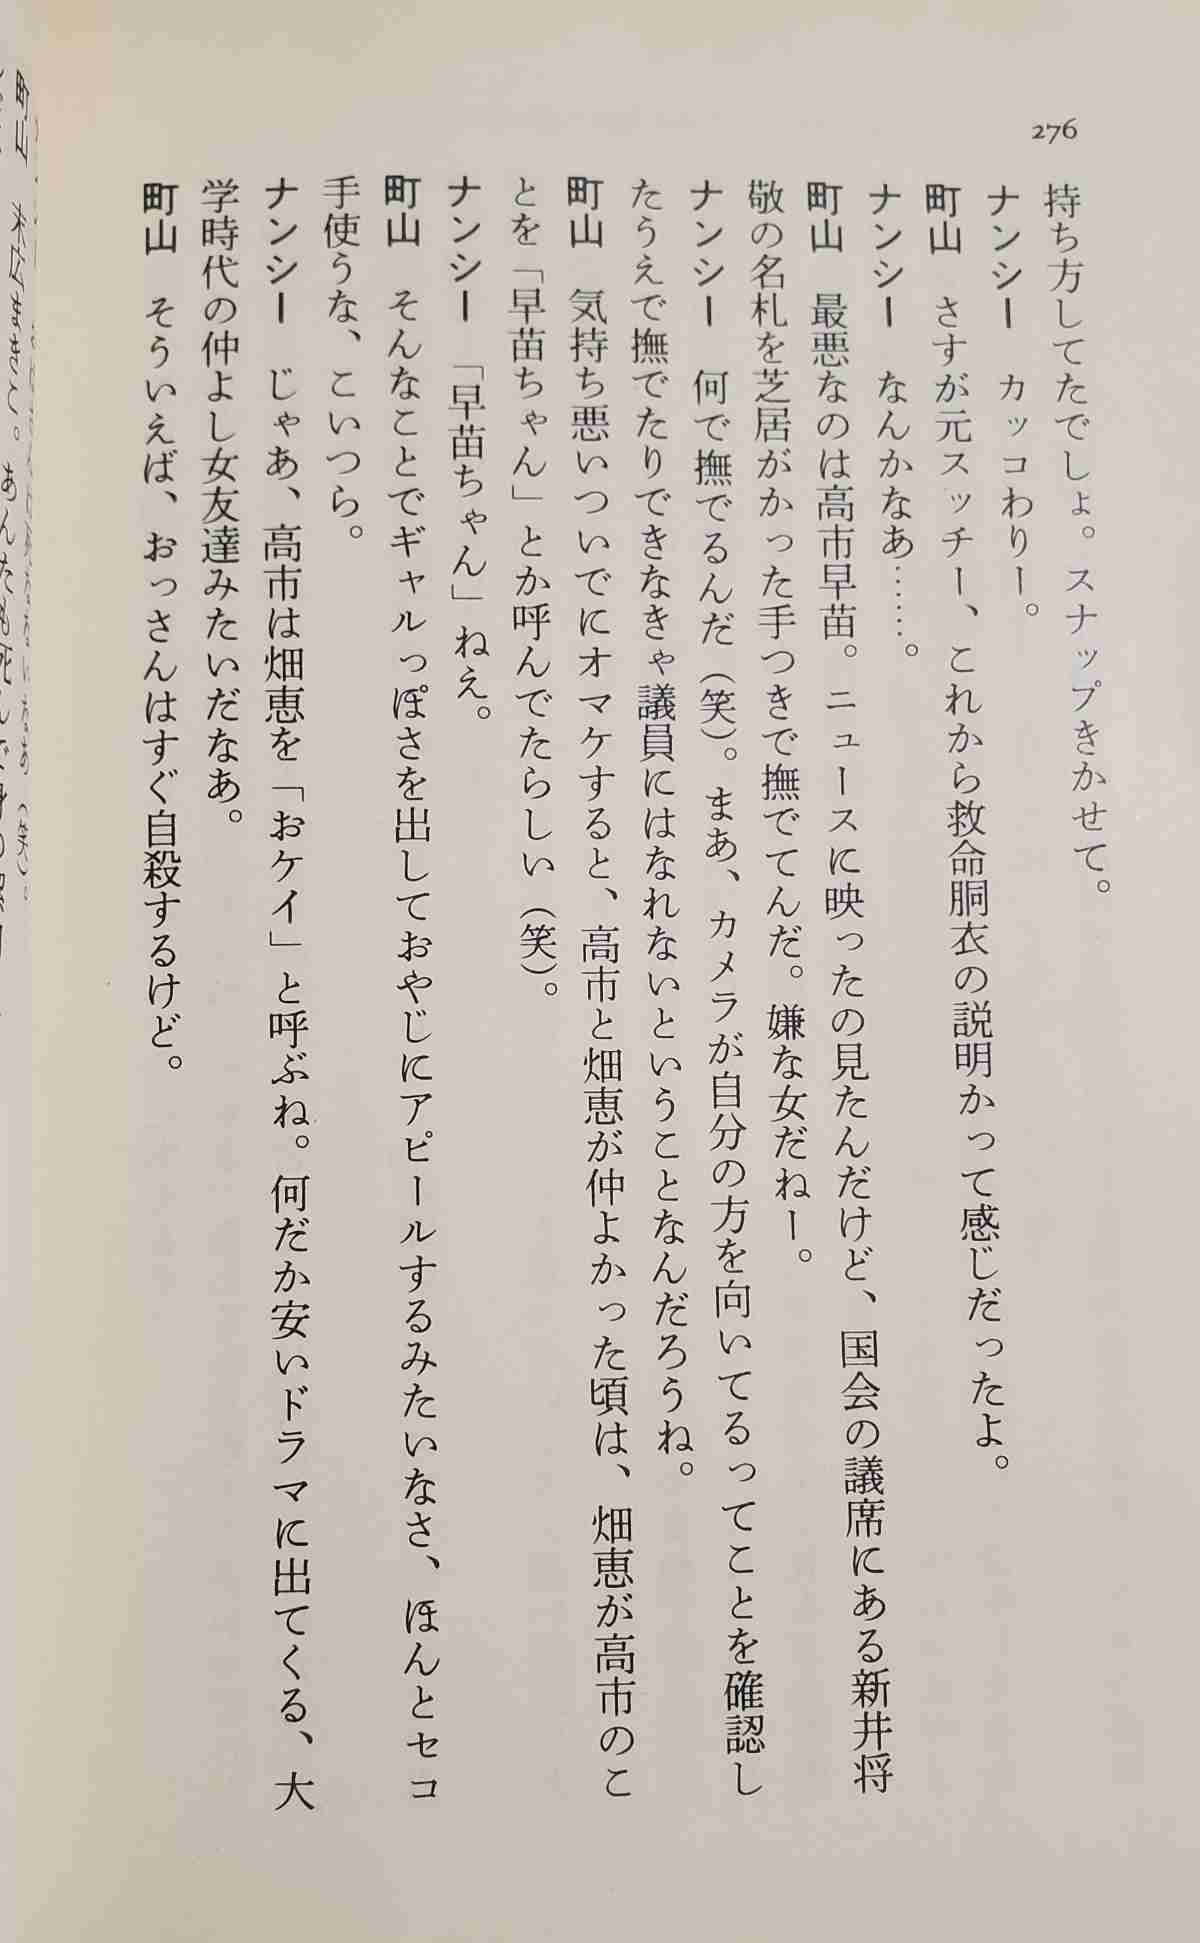 276
持ち方してたでしょ。スナップきかせて。
ナンシー　カッコわりー。
町山　さすが元スッチー、これから救命胴衣の説明かって感じだったよ。
ナンシー　なんかなあ……。
町山　最悪なのは高市早苗。ニュースに映ったの見たんだけど、国会の議席にある新井将
敬の名札を芝居がかった手つきで撫でてんだ。嫌な女だねー。
ナンシー　何で撫でるんだ（笑）。まあ、カメラが自分の方を向いてるってことを確認し
たうえで撫でたりできなきゃ議員にはなれないということなんだろうね。
町山　気持ち悪いついでにオマケすると、高市と畑恵が仲よかった頃は、畑恵が高市のこ
とを「早苗ちゃん」とか呼んでたらしい（笑）。
ナンシー　「早苗ちゃん」ねえ。
町山　そんなことでギャルっぽさを出しておやじにアピールするみたいなさ、ほんとセコ
手使うな、こいつら。
ナンシー　じゃあ、高市は畑恵を「おケイ」と呼ぶね。何だか安いドラマに出てくる、大
学時代の仲よし女友達みたいだなあ。
町山　そういえば、おっさんはすぐ自殺するけど。
町山　末広まきこ。あんたも死んで身の